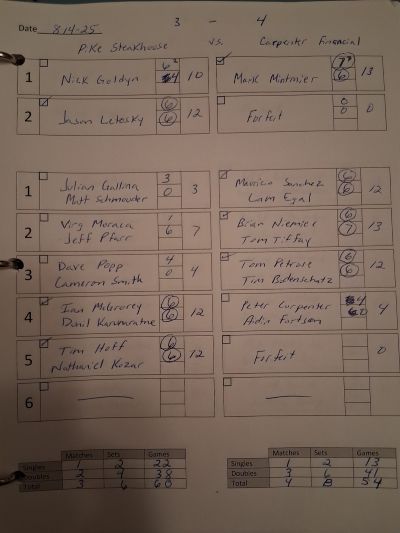 3 - 4
Date 8-14-25
Pike Steakhouse vs. Carpenter Financial
1 Nick Goldyn 6² 4 10 Mark Mintmier 7⁷ 6 13
2 Jason Letosky 6 6 12 Forfeit 0 0 0
1 Julian Gallina 3 Mauricio Sanchez 6
Matt Schmouder 0 3 Liam Egal 6 12
2 Virg Moraca 1 Brian Niemier 6
Jeff Pfarr 6 7 Tom Tiffay 7 13
3 Dave Popp 4 Tom Petrose 6
Cameron Smith 0 4 Tim Bodenschatz 6 12
4 Ian McGrorey 6 Peter Carpenter 4
Danil Karunaratne 6 12 Fortson 0 4
5 Tim Hoff 6 Forfeit 0
Nathaniel Kozar 6 12
6
Matches Sets Games Matches Sets Games
Singles 1 2 22 Singles 1 2 13
Doubles 2 4 38 Doubles 3 6 41
Total 3 6 60 Total 4 8 54